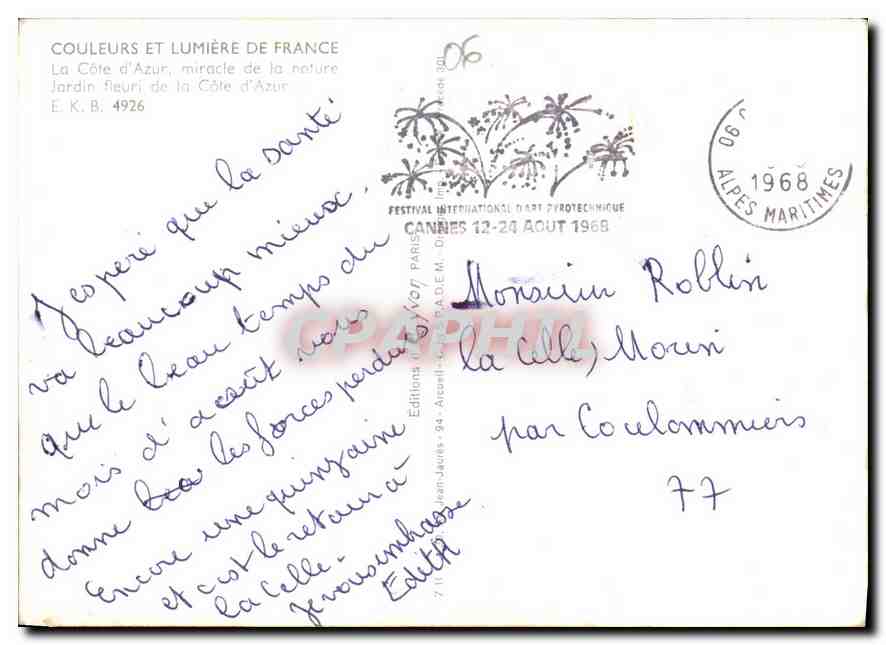 COULEURS ET LUMIÈRE DE FRANCE
La Côte d'Azur, miracle de la nature
Jardin fleuri de la Côte d'Azur
E. K. B. 4926
06
FESTIVAL INTERNATIONAL D'ART PYROTECHNIQUE
CANNES 12-24 AOUT 1968
06
1968
ALPES MARITIMES
J'esperé que la santé
va beaucoup mieux.
que le beau temps du
mois d'août vous
donne les forces perdues,
Encore une quinzaine
et c'est le retour à
la Celle.
je vous embrasse
Edith
Monsieur Roblin
La Celle, Morin
par Coulommiers
77
Editions d' yvon PARIS
Jean-Jaurès - 94 - Arcueil - C. S. P.A.D.E.M.
CPAPHIL